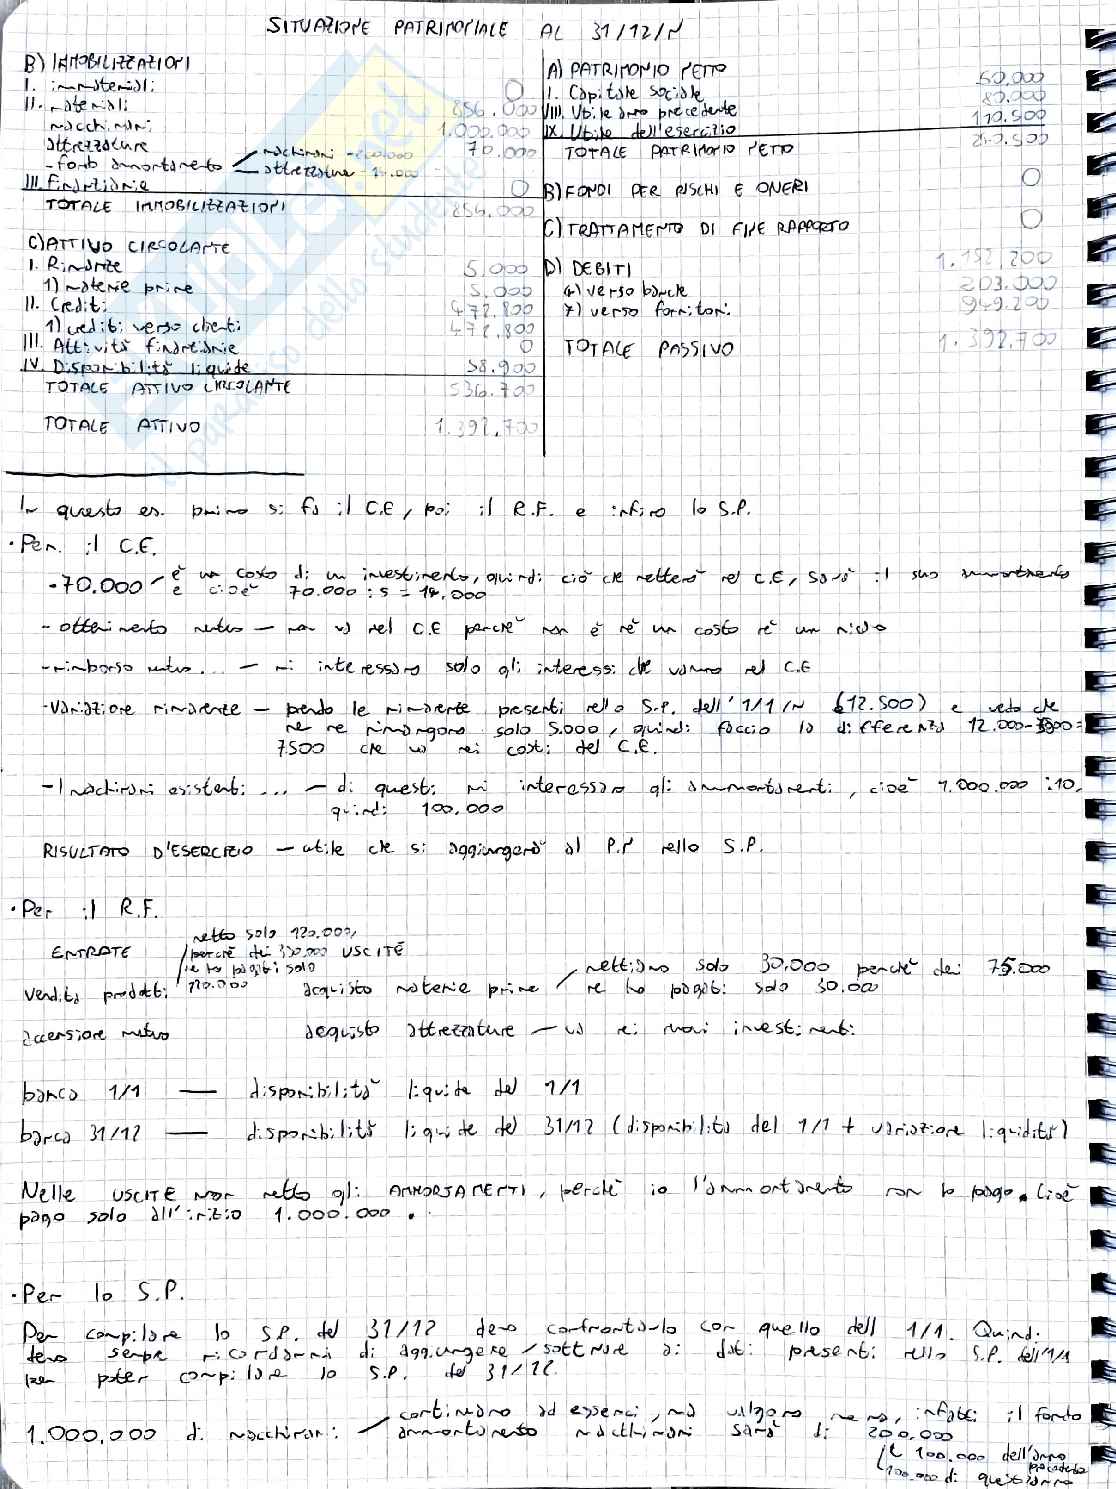 SITUAZIONE PATRIMONIALE AL 31/12/N
B) IMMOBILIZZAZIONI
I. immateriali 0
II. materiali 856.000
macchinari 1.000.000
attrezzature 70.000
- fondo ammortamento macchinari -200.000
attrezzature 14.000
III. Finanziarie 0
TOTALE IMMOBILIZZAZIONI 856.000
C) ATTIVO CIRCOLANTE
I. Rimanenze 5.000
1) materie prime 5.000
II. Crediti 472.800
1) crediti verso clienti 472.800
III. Attività finanziarie 0
IV. Disponibilità liquide 58.900
TOTALE ATTIVO CIRCOLANTE 536.700
TOTALE ATTIVO 1.392.700
A) PATRIMONIO NETTO
I. Capitale sociale 50.000
VIII. Utile anno precedente 80.000
IX. Utile dell'esercizio 110.500
TOTALE PATRIMONIO NETTO 240.500
B) FONDI PER RISCHI E ONERI 0
C) TRATTAMENTO DI FINE RAPPORTO 0
D) DEBITI 1.152.200
4) verso banche 203.000
7) verso fornitori 949.200
TOTALE PASSIVO 1.392.700
In questo es. primo si fa il C.E, poi il R.F. e infine lo S.P.
• Per il C.E.
- 70.000 è un costo di un investimento, quindi ciò che metterò nel C.E, sarà il suo ammortamento
e cioè 70.000 : 5 = 14.000
- ottenimento mutuo — non va nel C.E perché non è né un costo né un ricavo
- rimborso mutuo... — mi interessano solo gli interessi che vanno nel C.E
- variazione rimanenze — prendo le rimanenze presenti nello S.P. dell'1/1/N (12.500) e vedo che
ne rimangono solo 5.000, quindi faccio la differenza 12.000-5000=
7500 che va nei costi del C.E.
- I macchinari esistenti ... — di questi mi interessano gli ammortamenti, cioè 1.000.000 : 10,
quindi 100.000
RISULTATO D'ESERCIZIO — utile che si aggiungerà al P.N nello S.P.
• Per il R.F.
ENTRATE
USCITE
vendita prodotti
metto solo 120.000,
perché dei 330.000
ne ho pagati solo
120.000
acquisto materie prime / mettiamo solo 30.000 perché dei 75.000
ne ho pagati solo 30.000
accensione mutuo
acquisto attrezzature — va nei nuovi investimenti
banca 1/1 — disponibilità liquide del 1/1
banca 31/12 — disponibilità liquide del 31/12 (disponibilità del 1/1 + variazione liquidità)
Nelle USCITE non metto gli AMMORTAMENTI, perché io l'ammortamento non lo pago. Cioè
pago solo all'inizio 1.000.000.
• Per lo S.P.
Per compilare lo S.P. del 31/12 devo confrontarlo con quello dell'1/1. Quindi
devo sempre ricordarmi di aggiungere / sottrarre ai dati presenti nello S.P. dell'1/1
per poter compilare lo S.P. del 31/12.
1.000.000 di macchinari / continuano ad esserci, ma valgono meno, infatti il fondo
ammortamento macchinari sarà di 200.000
100.000 dell'anno precedente
100.000 di quest'anno